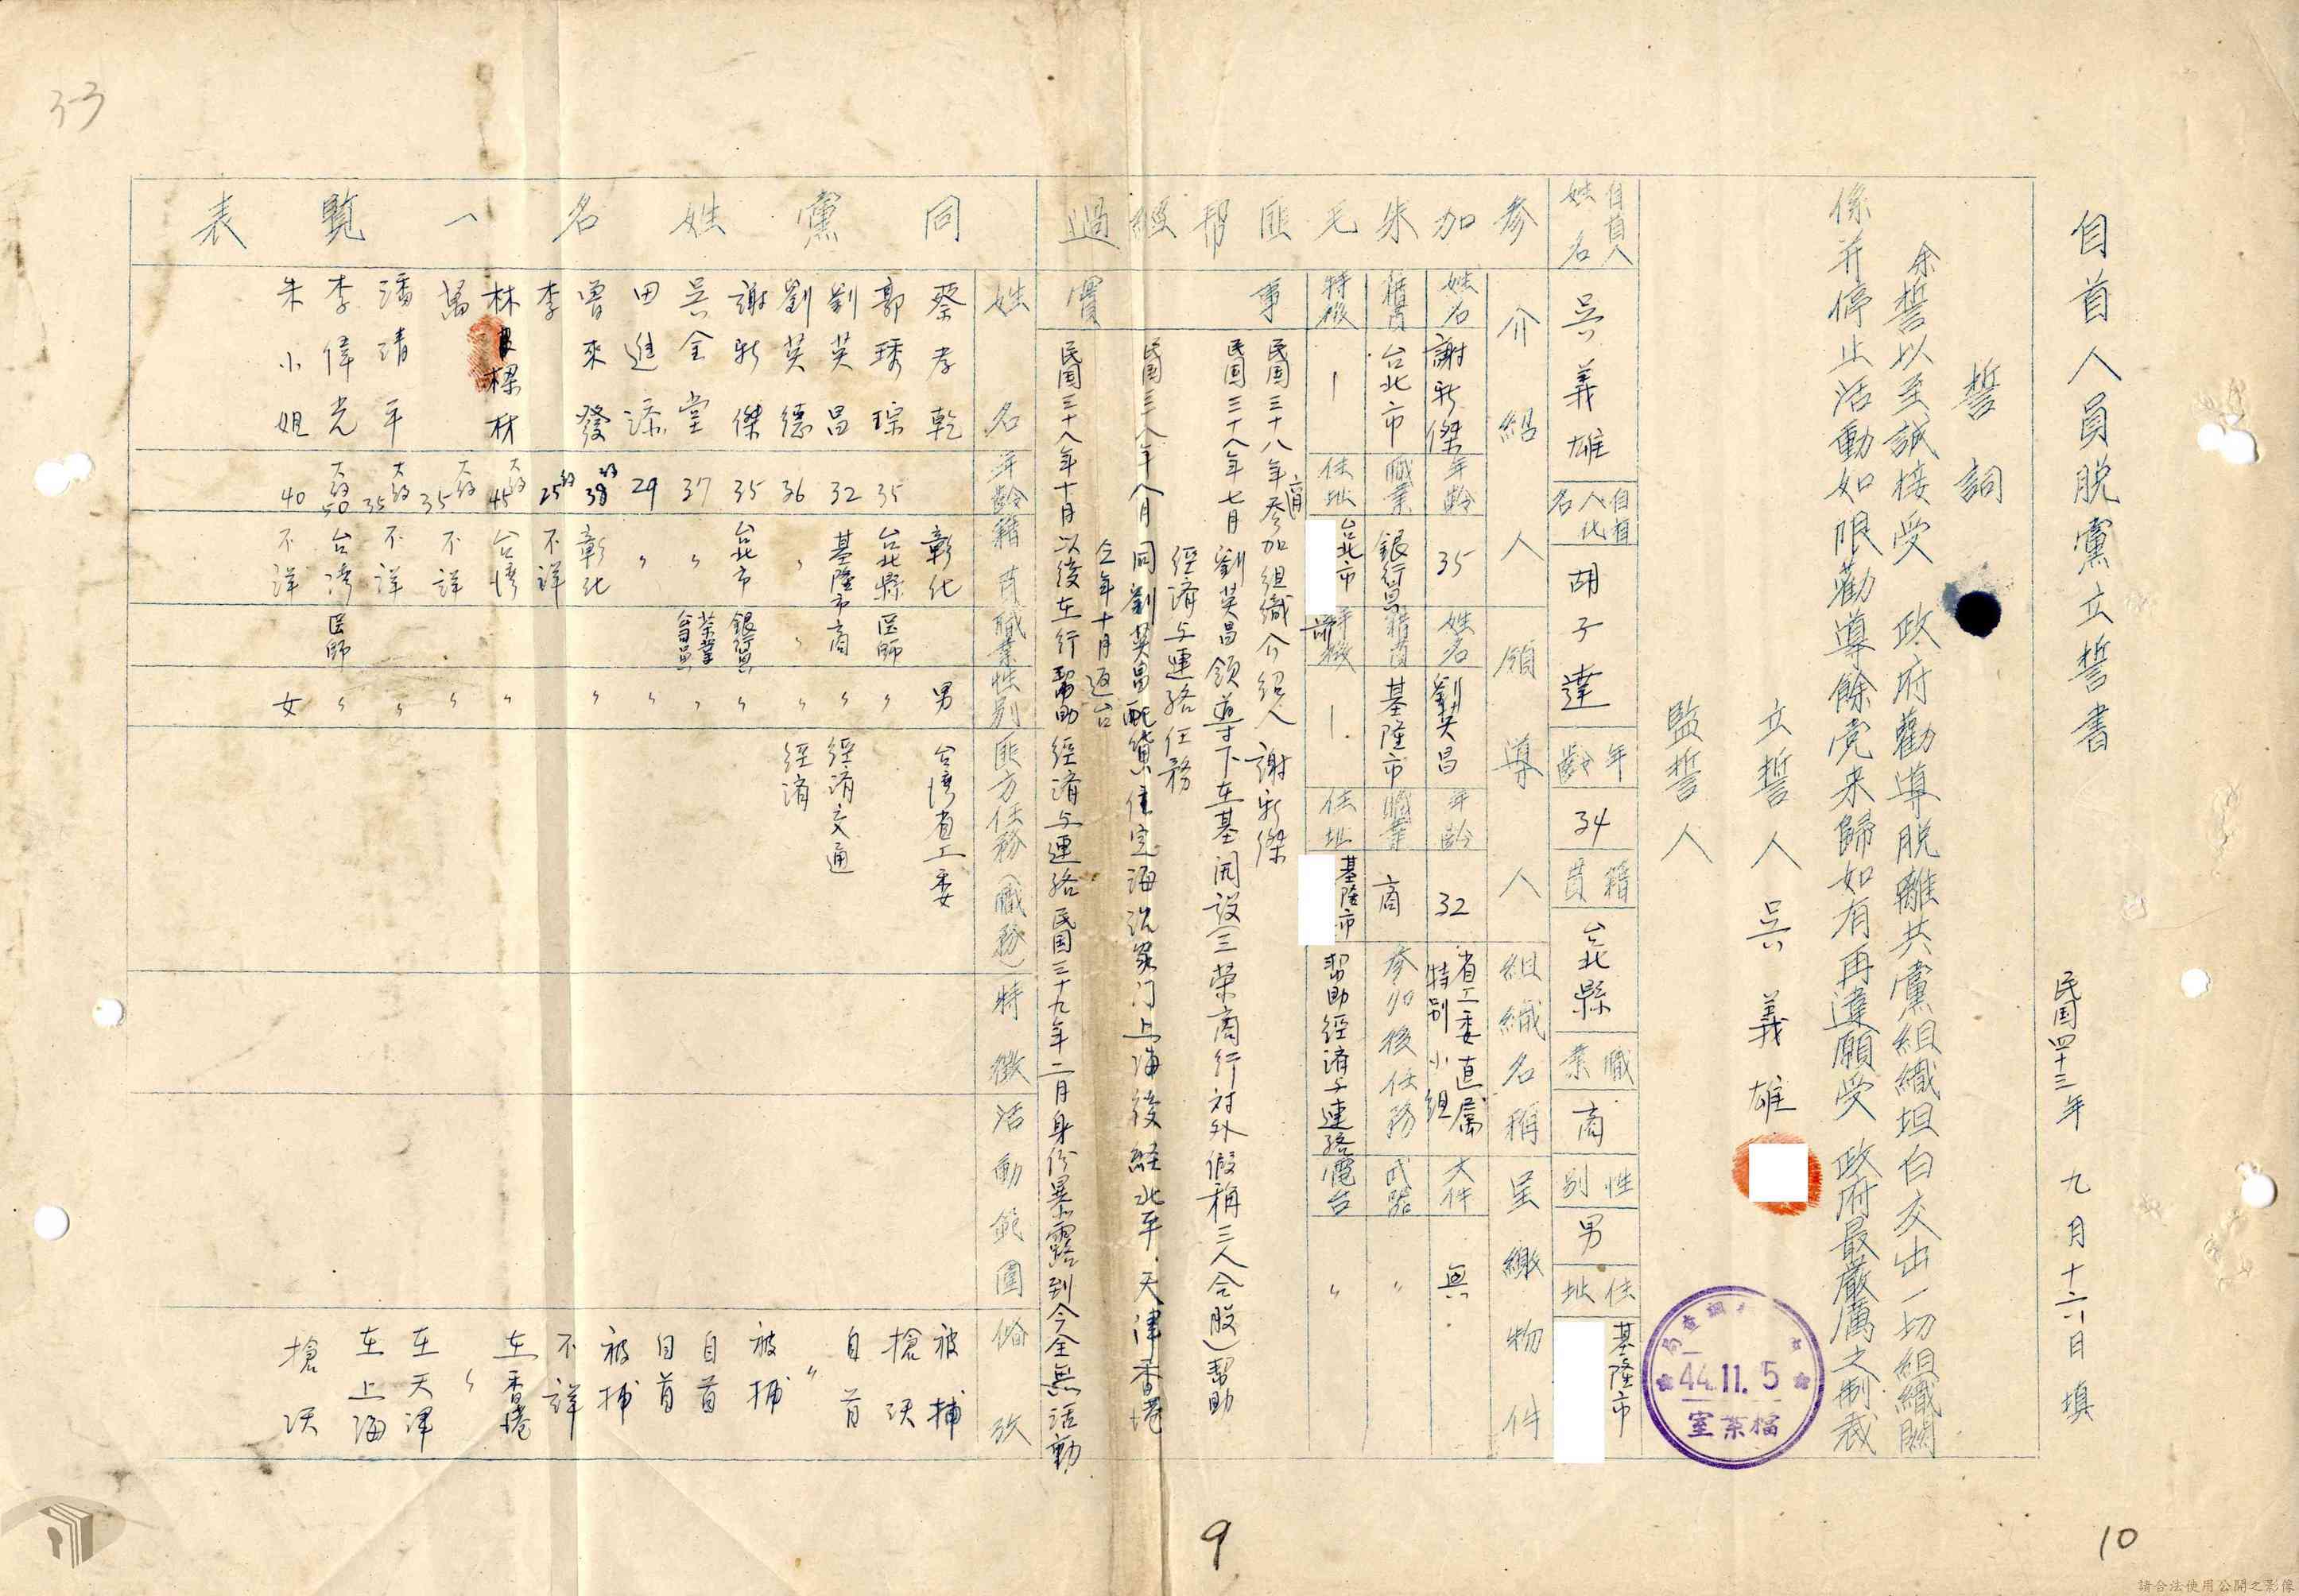 自首人員脫黨立誓書
民国四十三年 九月十六日 填
誓詞
余誓以至誠接受 政府勸導脫離共黨組織坦白交出一切組織關
係并停止活動如限勸導餘党来歸如有再違願受 政府最嚴厲之制裁
立誓人 吳義雄
監誓人
查調
局
44.11.5
檔案室
自首人姓名 吳義雄
自首人化名 胡子達
年齡 34
籍貫 台北縣
職業 商
性別 男
住址 基隆市
參加朱毛匪幫經過
介紹人
姓名 謝新傑 年齡 35
籍貫 台北市 職業 銀行員
特徵 住址 台北市
領導人
姓名 劉英昌 年齡 32
籍貫 基隆市 職業 商
特徵 住址 基隆市
組織名稱
省工委直屬
特別小組
參加後任務
幫助經濟与連絡
呈繳物件
文件 無
武器 〃
電台 〃
事實
民国三十八年 參加組織介紹人 謝新傑
民国三十八年七月 劉英昌領導下在基開設(三榮商行対外假稱三人合股)幫助
經濟与連絡任務
民国三八年八月 同劉英昌配貨住定海 門上海後経北平.天津香港
仝年十月返台
民国三十八年十月以後在行幫助 經濟与連絡 民国三十九年二月身份暴露到今全無活動
同黨姓名一覧表
姓名 年齡 籍貫 職業 性別 匪方任務(職務) 特徵 活動範圍 備攷
蔡孝乾 彰化 男 台灣省工委 被捕
郭琇琮 35 台北縣 医師 〃 槍決
劉英昌 32 基隆市 商 〃 經濟交通 自首
劉英德 36 〃 〃 〃 經濟 〃
謝新傑 35 台北市 銀行員 〃 被捕
吳金堂 37 〃 茶業公司員 〃 自首
田進添 29 〃 〃 自首
曾來發 約38 彰化 〃 被捕
李 約25 不詳 不詳
林樑材 大約45 台灣 〃 在香港
萬 大約35 不詳 〃 〃
潘靖平 大約35 不詳 〃 在天津
李偉光 大約50 台灣 医師 〃 在上海
朱小姐 40 不洋 女 槍決
33
9
10
請合法使用公開之影像